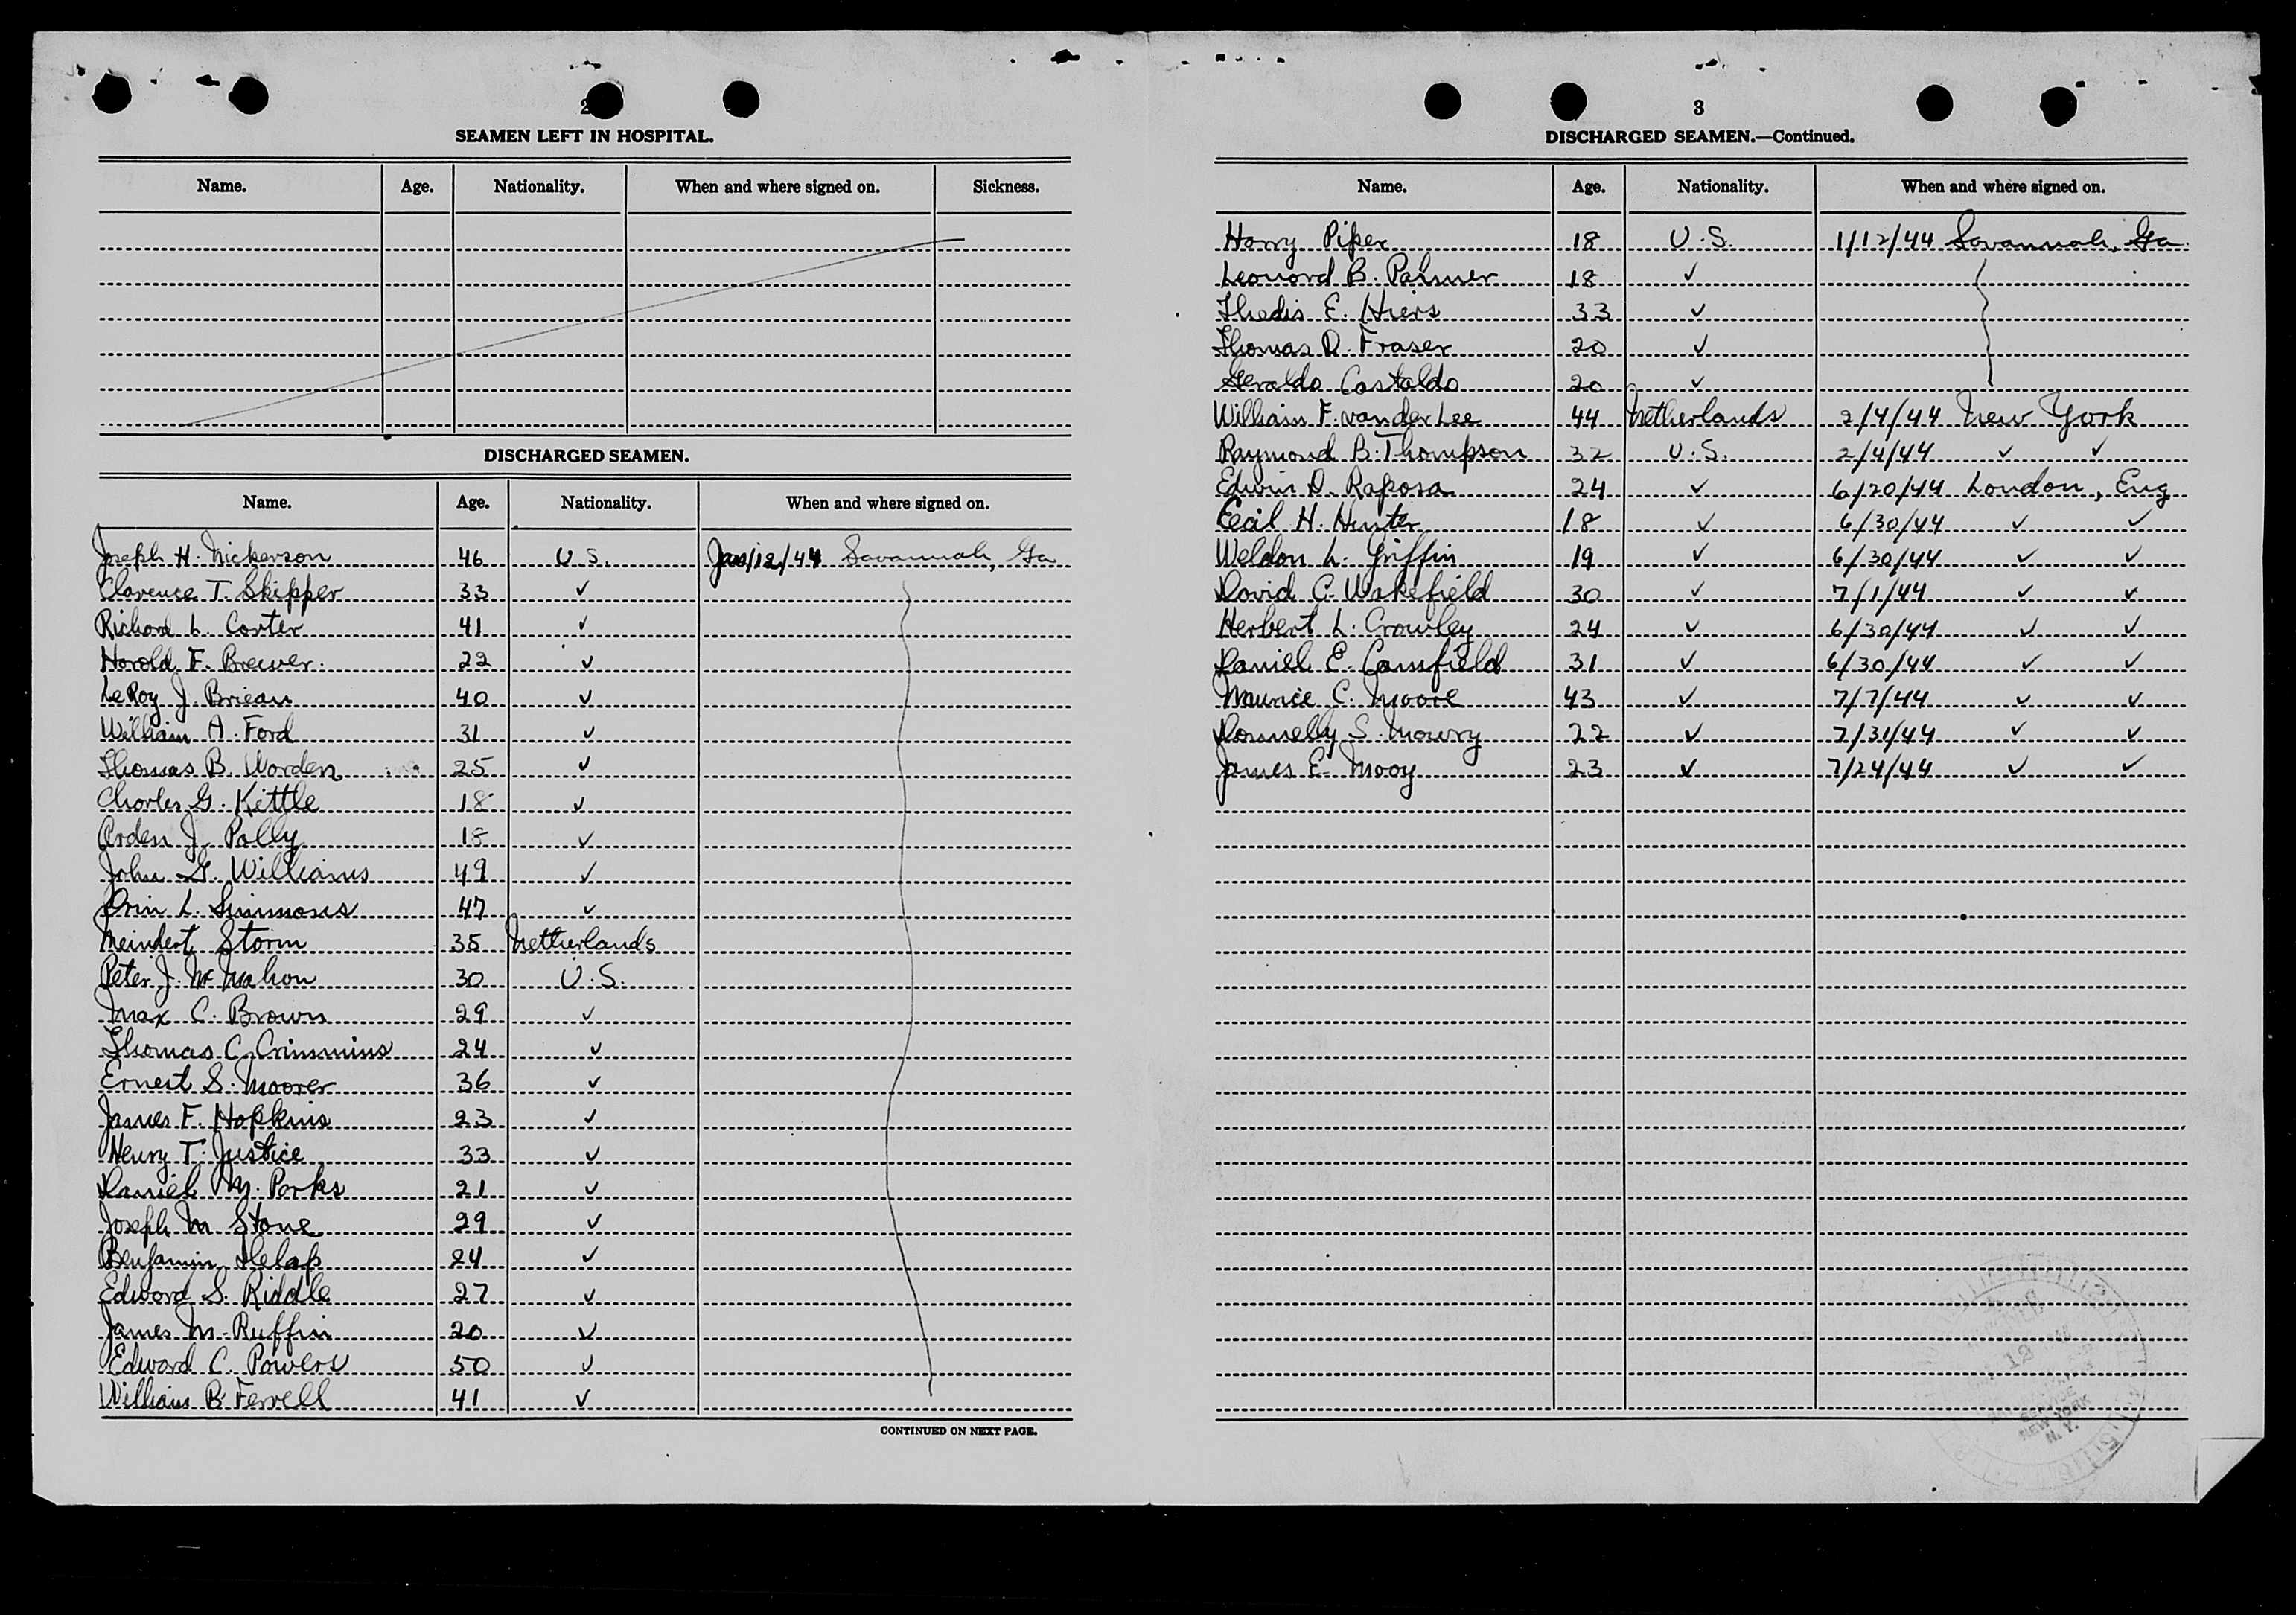 2
SEAMEN LEFT IN HOSPITAL.
Name. Age. Nationality. When and where signed on. Sickness.
DISCHARGED SEAMEN.
Name. Age. Nationality. When and where signed on.
Joseph H. Nickerson 46 U.S. Jan/12/44 Savannah, Ga
Clarence T. Skipper 33 ✓
Richard L. Carter 41 ✓
Harold F. Brewer. 22 ✓
LeRoy J. Briean 40 ✓
William A. Ford 31 ✓
Thomas B. Worden 25 ✓
Charles G. Kettle 18 ✓
Arden J. Polly 18 ✓
John G. Williams 49 ✓
Orin L. Simmons 47 ✓
Meindert Storm 35 Netherlands
Peter J. McMahon 30 U.S.
Max C. Brown 29 ✓
Thomas C. Crimmins 24 ✓
Ernest S. Moorer 36 ✓
James F. Hopkins 23 ✓
Henry T. Justice 33 ✓
Daniel M. Parks 21 ✓
Joseph M Stone 29 ✓
Benjamin 24 ✓
Edward S. Riddle 27 ✓
James M. Ruffin 20 ✓
Edward C. Powers 50 ✓
William B. Ferrell 41 ✓
CONTINUED ON NEXT PAGE.
3
DISCHARGED SEAMEN.—Continued.
Name. Age. Nationality. When and where signed on.
Harry Piper 18 U.S. 1/12/44 Savannah, Ga.
Leonard B. Palmer 18 ✓
Thedis E. Hiers 33 ✓
Thomas D. Fraser 20 ✓
Geraldo Castaldo 20 ✓
William F. van der Lee 44 Netherlands 2/4/44 New York
Raymond B. Thompson 32 U.S. 2/4/44 ✓ ✓
Edwin D. Raposa 24 ✓ 6/20/44 London, Eng
Cecil H. Hunter 18 ✓ 6/30/44 ✓ ✓
Weldon L. Griffin 19 ✓ 6/30/44 ✓ ✓
David C. Wakefield 30 ✓ 7/1/44 ✓ ✓
Herbert L. Crowley 24 ✓ 6/30/44 ✓ ✓
Daniel E. Camfield 31 ✓ 6/30/44 ✓ ✓
Maurice C. Moore 43 ✓ 7/7/44 ✓ ✓
Donnelly S. Mowry 22 ✓ 7/31/44 ✓ ✓
James E. Mooy 23 ✓ 7/24/44 ✓ ✓
19
NEW YORK
N. Y.